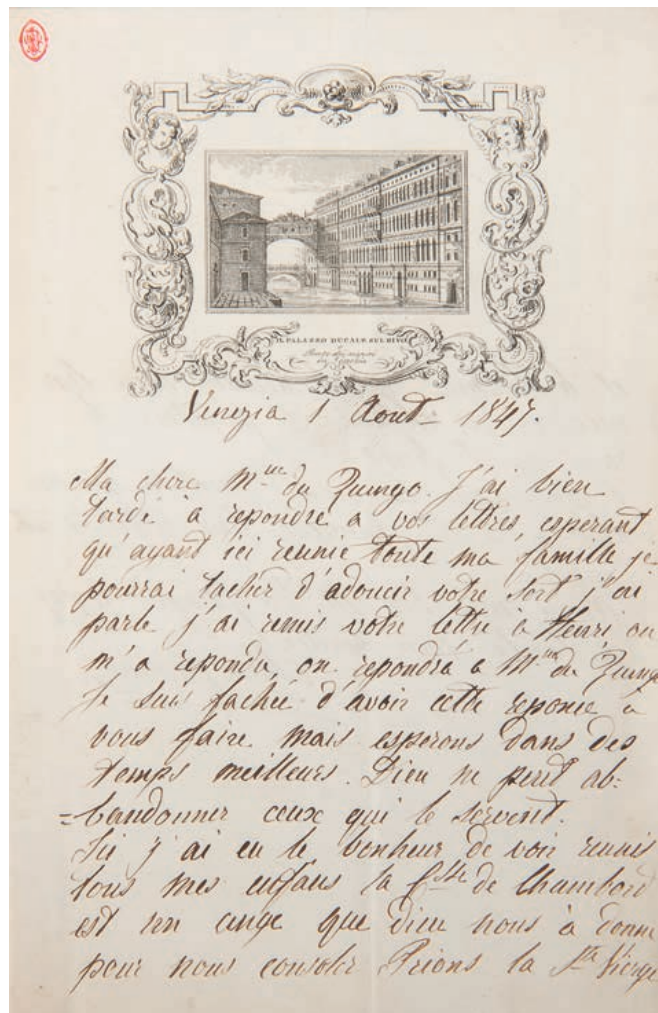 IL PALAZZO DUCALE SUL RIVO
Venezia 1 Aout 1847.
Ma chere Mme du Quengo. J'ai bien
tardé à repondre a vos lettres, esperant
qu'ayant ici reunie toute ma famille je
pourrai tacher d'adoucir votre sort j'ai
parlé j'ai remis votre lettre à Henri on
m'a repondu, on repondra a Mme du Quengo
Je suis fachée d'avoir cette reponse à
vous faire mais esperons dans des
temps meilleurs. Dieu ne peut ab=
=bandonner ceux qui le servent.
Ici j'ai eu le bonheur de voir reunis
tous mes enfans la Csse de Chambord
est un ange que dieu nous à donné
pour nous consoler Prions la Ste Vierge